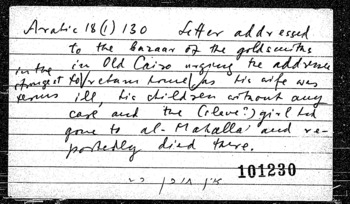 Arabic 18(1) 130 Letter addressed
to the bazaar of the goldsmiths
in Old Cairo urging the addressee
in the strongest terms
to return home, as his wife was
ill, his children without any
care and the (slave?) girl had
gone to al-Mahalla and re-
portedly died there.
101230